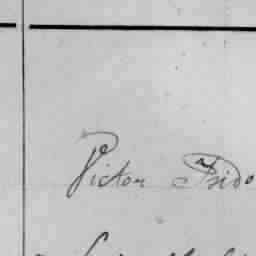 Victor Isido